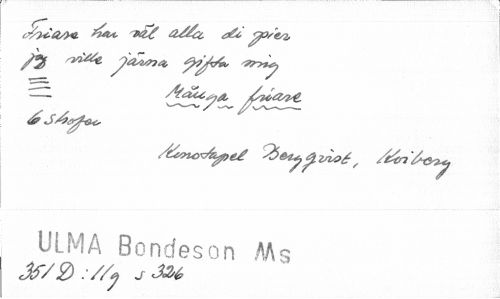 Friare har väl alla di pier
jag ville järna gifta mig
Många friare
6 strofer
Konstapel Bergqvist, Kviberg
ULMA Bondeson Ms
351 D:11g s 326